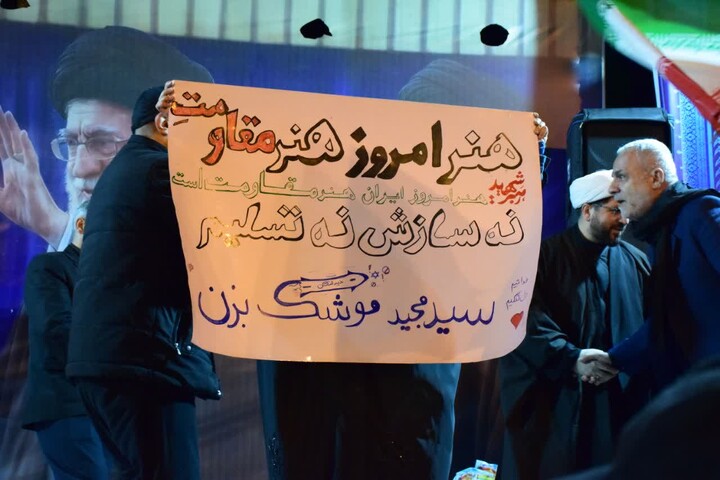 هنر امروز هنر مقاومت
رهبر شهید: هنر امروز ایران هنر مقاومت است
نه سازش نه تسلیم
سید مجید موشک بزن